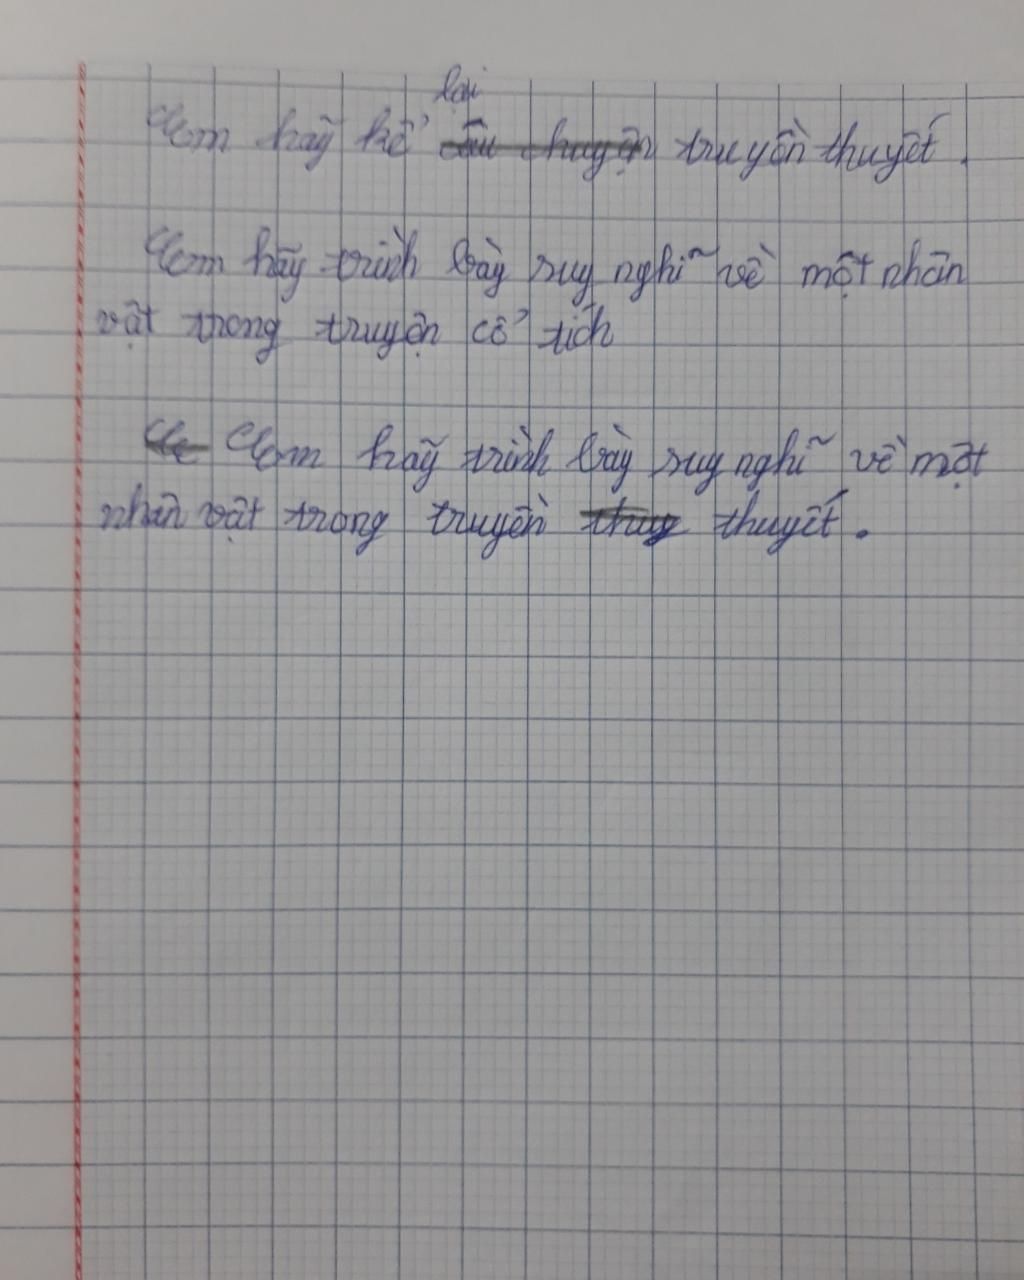 Em hãy kể lại truyền thuyết.
Em hãy trình bày suy nghĩ về một nhân
vật trong truyện cổ tích
Em hãy trình bày suy nghĩ về một
nhân vật trong truyền thuyết.